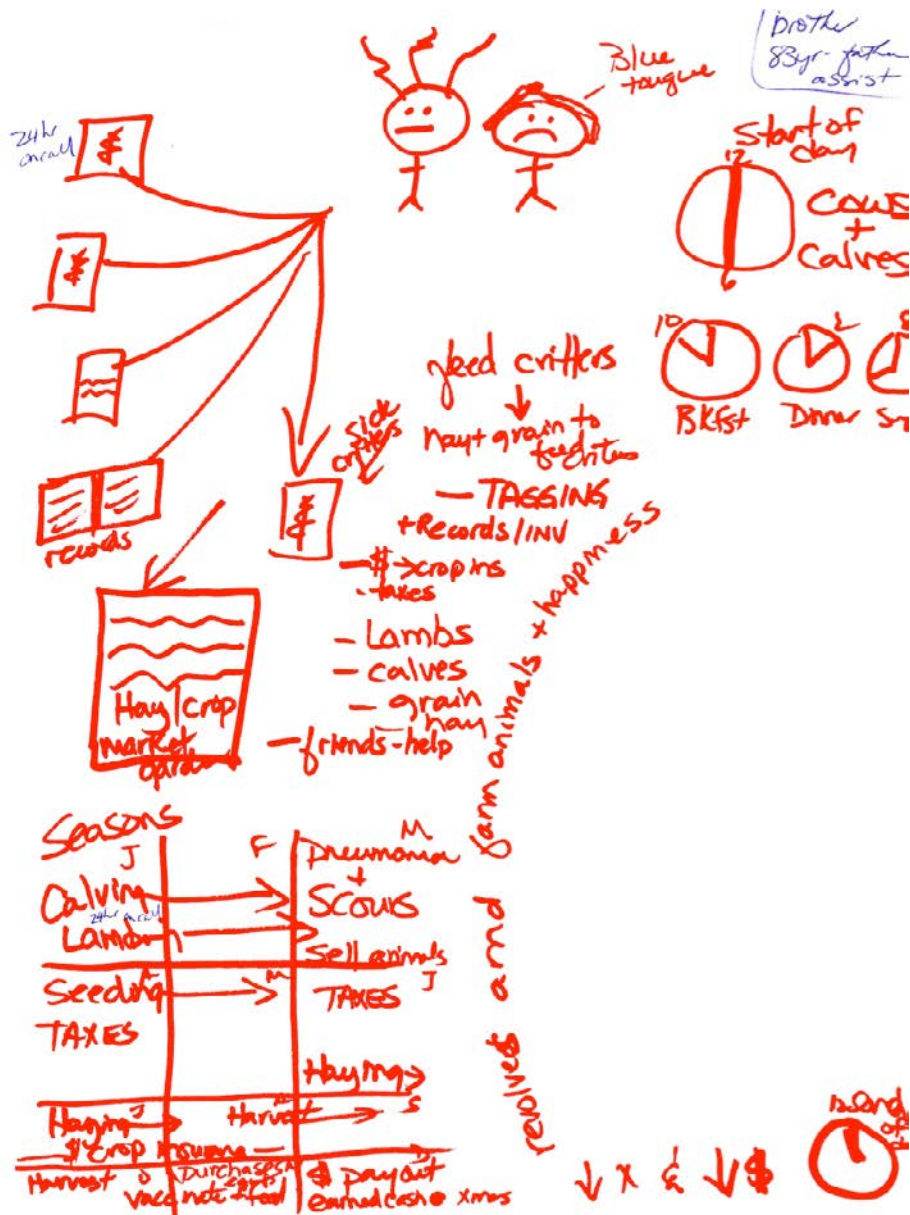 brother
83yr- father
assist
Blue
tongue
24hr
oncall
$
Start of
day
12
6
Cows
+
Calves
$
10
2
8
BKfst
Dinner
feed critters
hay + grain to
feed critters
sick
critters
$
- TAGGING
+Records/INV
records
- $ → crop ins
- taxes
- Lambs
- calves
- grain
hay
- friends-help
Hay crop
market
garden
revolves around farm animals + happiness
Seasons
J F M
Calving
pneumonia
+
Scours
24hr oncall
Lambing
Sell animals
A M J
Seeding
TAXES
TAXES
Haying
J A S
Haying
Harvest
$ crop insurance
Harvest
O
purchases
vacc
feed
$ pay out
earned cash @ xmas
↓ x & ↓ $